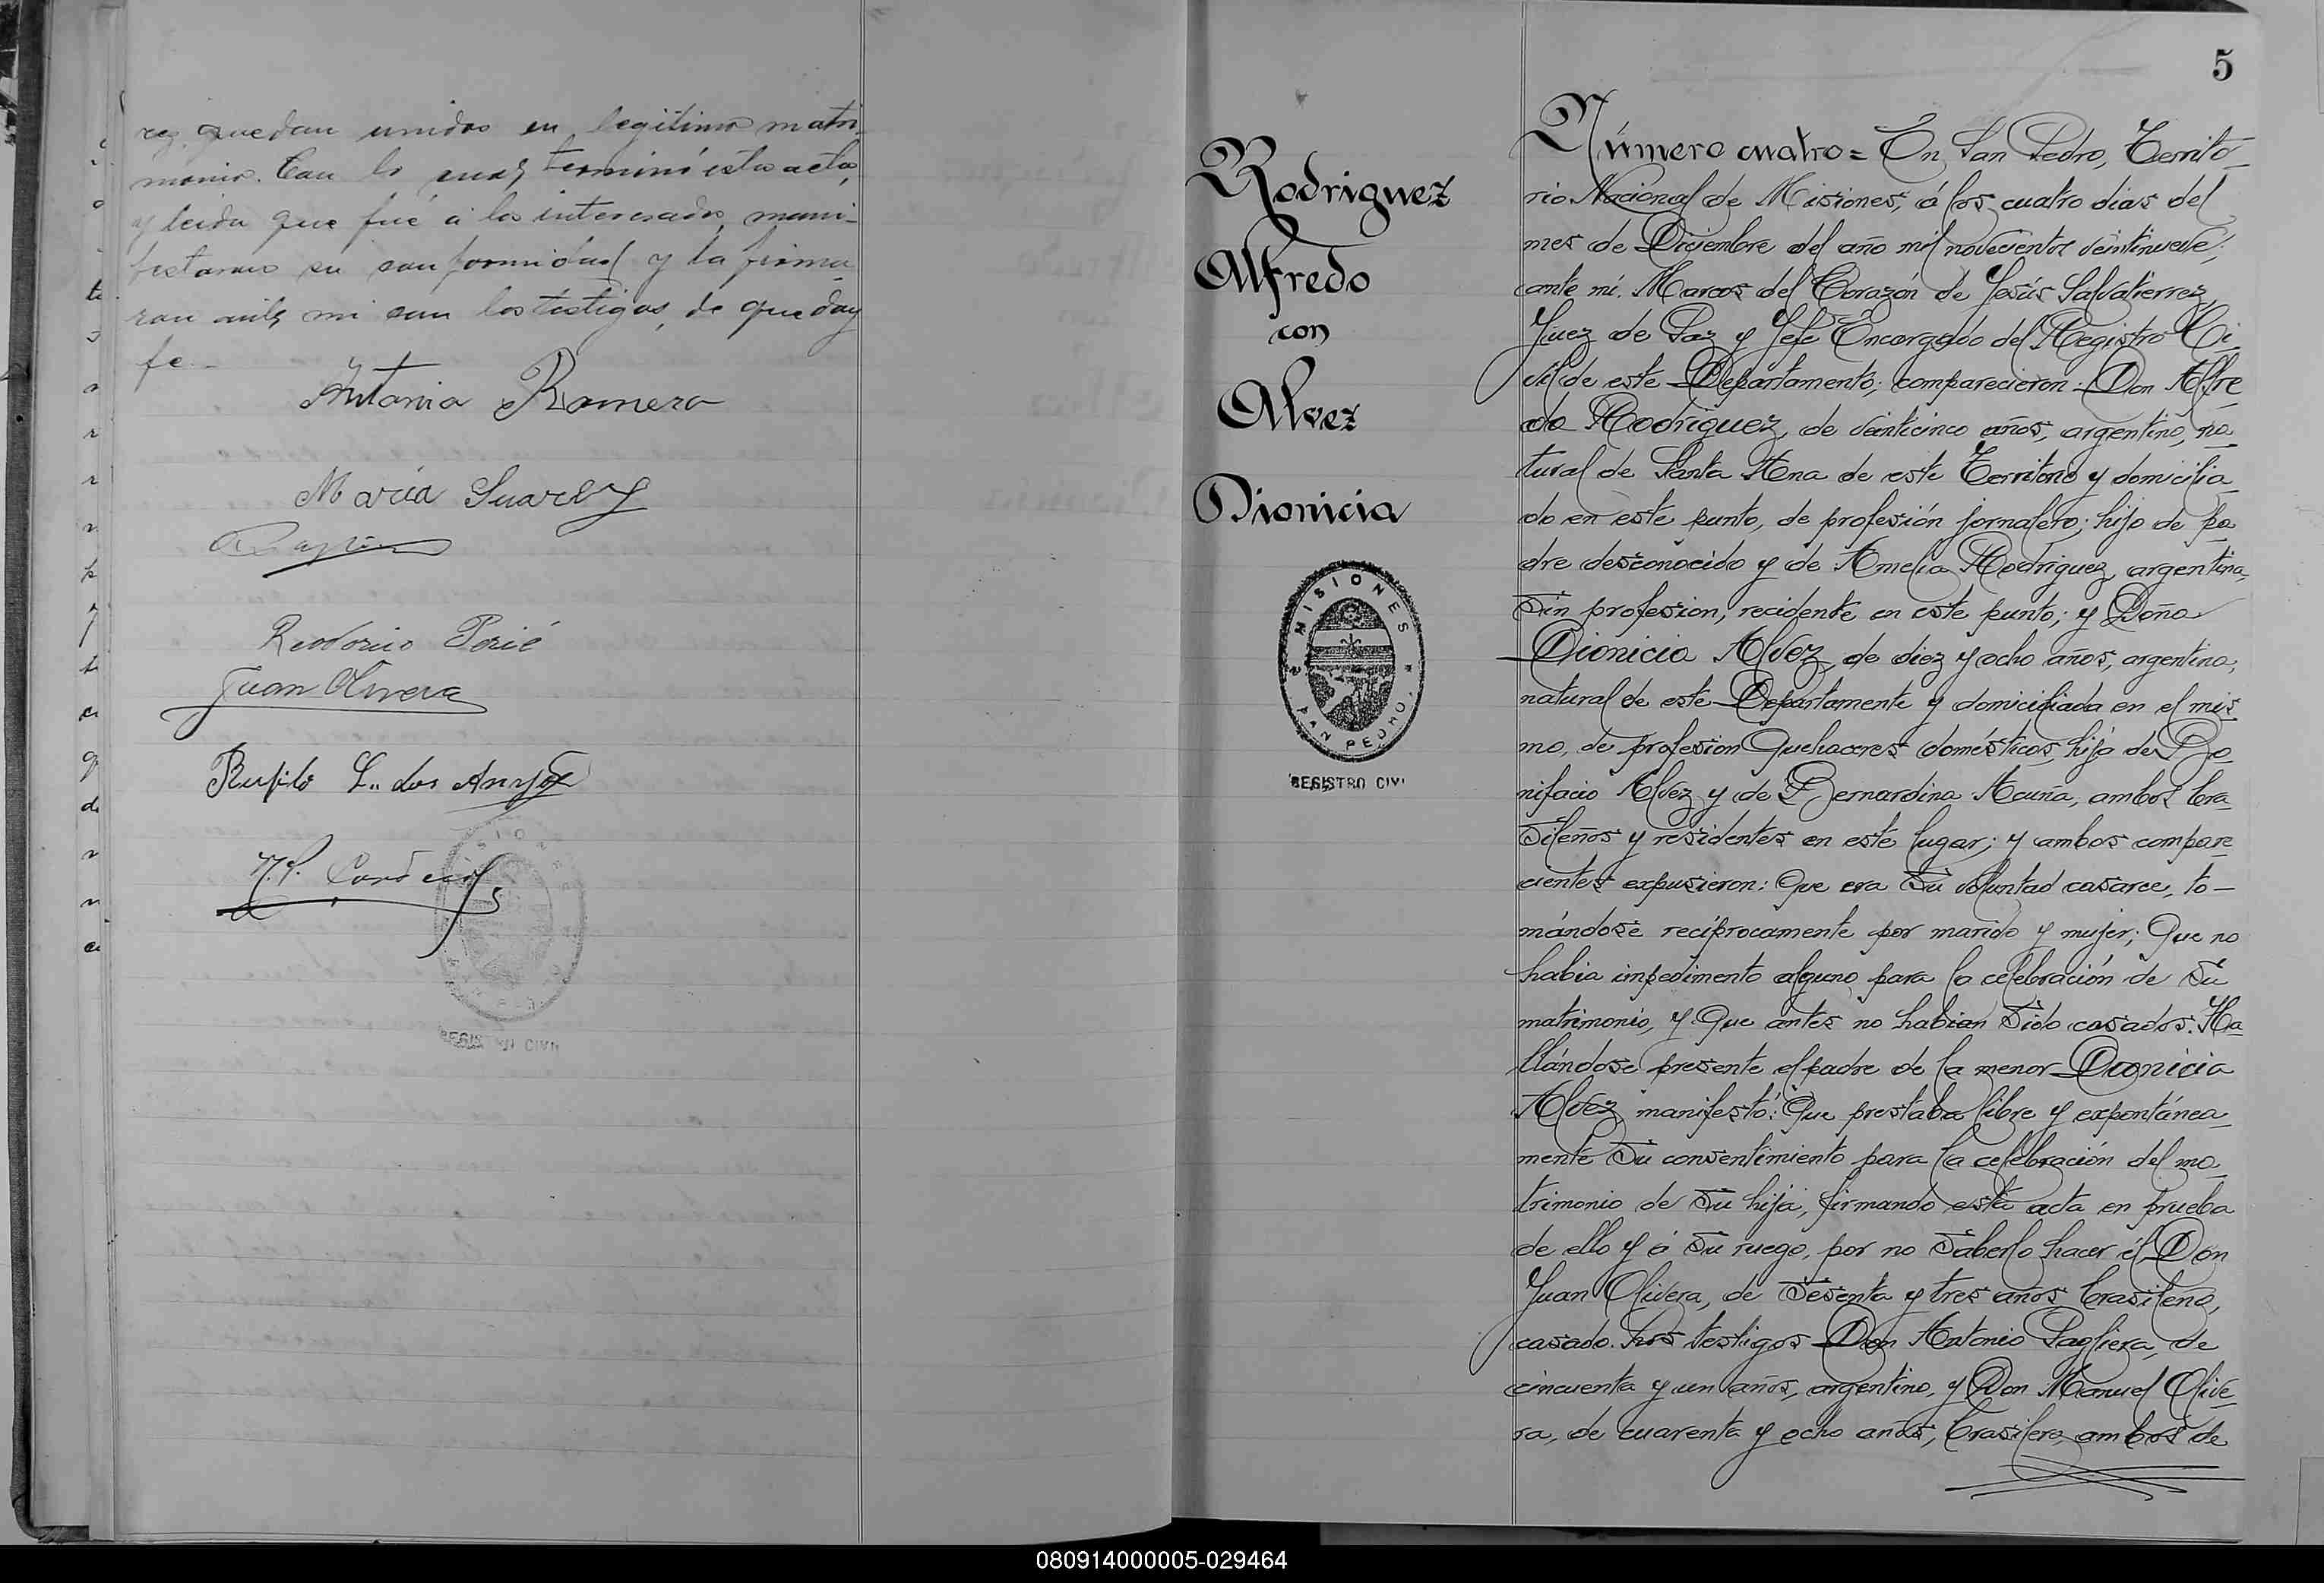 rez, quedan unidos en legítimo matri-
monio. Con lo cual terminó esta acta,
y leida que fué á los interesados, mani-
festaron su conformidad y la firma-
ron ante mi con los testigos, de que doy
fe.-
Antonio Romero
María Suarez
Juan Olivera
L. dos Anjos
REGISTRO CIVIL
5
Rodriguez
Alfredo
con
Alvez
Dionicia
MISIONES
SAN PEDRO
REGISTRO CIVI
Número cuatro = En San Pedro, Territo-
rio Nacional de Misiones, á los cuatro dias del
mes de Diciembre del año mil novecientos veintinueve;
ante mí. Marcos del Corazón de Jesús Salvatierrez,
Juez de Paz y Jefe Encargado del Registro Ci-
vil de este Departamento; comparecieron: Don Alfre-
do Rodriguez, de veinticinco años, argentino, na-
tural de Santa Ana de este Territorio y domicilia-
do en este punto, de profesión jornalero; hijo de pa-
dre desconocido y de Amelia Rodriguez, argentina,
sin profesion, recidente en este punto; y Doña
Dionicia Alvez, de diez y ocho años, argentina,
natural de este Departamento y domiciliada en el mis-
mo, de profesion Quehaceres domésticos, hija de Bo-
nifacio Alvez y de Bernardina Acuña, ambos bra-
sileños y residentes en este lugar; y ambos compare-
cientes expusieron: Que era su voluntad casarce, to-
mándose recíprocamente por marido y mujer; Que no
habia impedimento alguno para la celebración de su
matrimonio, y Que antes no habian sido casados. Ha-
llándose presente el padre de la menor Dionicia
Alvez manifestó: Que prestaba libre y expontánea-
mente su consentimiento para la celebración del ma-
trimonio de su hija, firmando esta acta en prueba
de ello y á su ruego, por no saberlo hacer él Don
Juan Olivera, de sesenta y tres años brasileño,
casado. Los testigos Don Antonio Pagliera, de
cincuenta y un años, argentino, y Don Manuel Olive-
ra, de cuarenta y ocho años, brasilero, ambos de
080914000005-029464